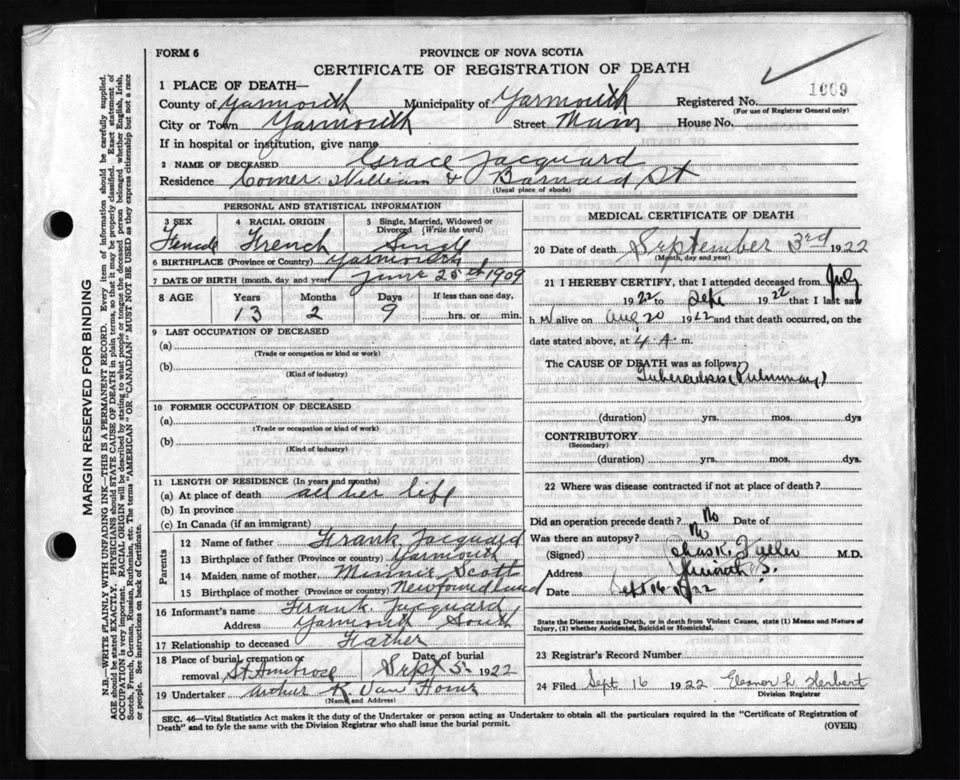 FORM 6
PROVINCE OF NOVA SCOTIA
CERTIFICATE OF REGISTRATION OF DEATH
1 PLACE OF DEATH—
County of Yarmouth Municipality of Yarmouth Registered No. 1009
(For use of Registrar General only)
City or Town Yarmouth Street Main House No.
If in hospital or institution, give name
2 NAME OF DECEASED Grace Jacquard
Residence Corner William & Barnard St
(Usual place of abode)
PERSONAL AND STATISTICAL INFORMATION
3 SEX 4 RACIAL ORIGIN 5 Single, Married, Widowed or Divorced (Write the word)
Female French Single
6 BIRTHPLACE (Province or Country) Yarmouth
7 DATE OF BIRTH (month, day and year) June 25th 1909
8 AGE Years Months Days If less than one day,
13 2 9 hrs. or min.
9 LAST OCCUPATION OF DECEASED
(a)
(Trade or occupation or kind or work)
(b)
(Kind of industry)
10 FORMER OCCUPATION OF DECEASED
(a)
(Trade or occupation or kind of work)
(b)
(Kind of industry)
11 LENGTH OF RESIDENCE (In years and months)
(a) At place of death all her life
(b) In province
(c) In Canada (if an immigrant)
Parents
12 Name of father Frank Jacquard
13 Birthplace of father (Province or country) Yarmouth
14 Maiden name of mother Minnie Scott
15 Birthplace of mother (Province or country) Newfoundland
16 Informant's name Frank Jacquard
Address Yarmouth South
17 Relationship to deceased Father
18 Place of burial, cremation or removal St Ambrose Date of burial Sept 5 1922
19 Undertaker Arthur K. Van Horne
(Name and Address)
MEDICAL CERTIFICATE OF DEATH
20 Date of death September 3rd 1922
(Month, day and year)
21 I HEREBY CERTIFY, that I attended deceased from
1922 to Sept 1922 that I last saw
h alive on Aug 20 1922 and that death occurred, on the
date stated above, at 4 A. m.
The CAUSE OF DEATH was as follows:
Tuberculosis (Pulmonary)
(duration) yrs. mos. dys
CONTRIBUTORY
(Secondary)
(duration) yrs. mos. dys.
22 Where was disease contracted if not at place of death?
Did an operation precede death? No Date of
Was there an autopsy? No
(Signed) Chas K. Fuller M.D.
Address
Date Sept 16 1922
State the Disease causing Death, or in death from Violent Causes, state (1) Means and Nature of
Injury, (2) whether Accidental, Suicidal or Homicidal.
23 Registrar's Record Number
24 Filed Sept 16 1922 Eleanor L Herbert
Division Registrar
SEC. 46—Vital Statistics Act makes it the duty of the Undertaker or person acting as Undertaker to obtain all the particulars required in the "Certificate of Registration of
Death" and to fyle the same with the Division Registrar who shall issue the burial permit.
(OVER)
MARGIN RESERVED FOR BINDING
N.B.—WRITE PLAINLY WITH UNFADING INK—THIS IS A PERMANENT RECORD. Every item of information should be carefully supplied.
AGE should be stated EXACTLY. PHYSICIANS should STATE CAUSE OF DEATH in plain terms, so that it may be properly classified. Exact statement of
OCCUPATION is very important. RACIAL ORIGIN will be described by stating to what people or tongue the deceased person belonged whether English, Irish,
Scotch, French, German, Russian, Ruthenian, etc. The terms "AMERICAN" OR "CANADIAN" MUST NOT BE USED as they express citizenship but not a race
or people. See instructions on back of Certificate.